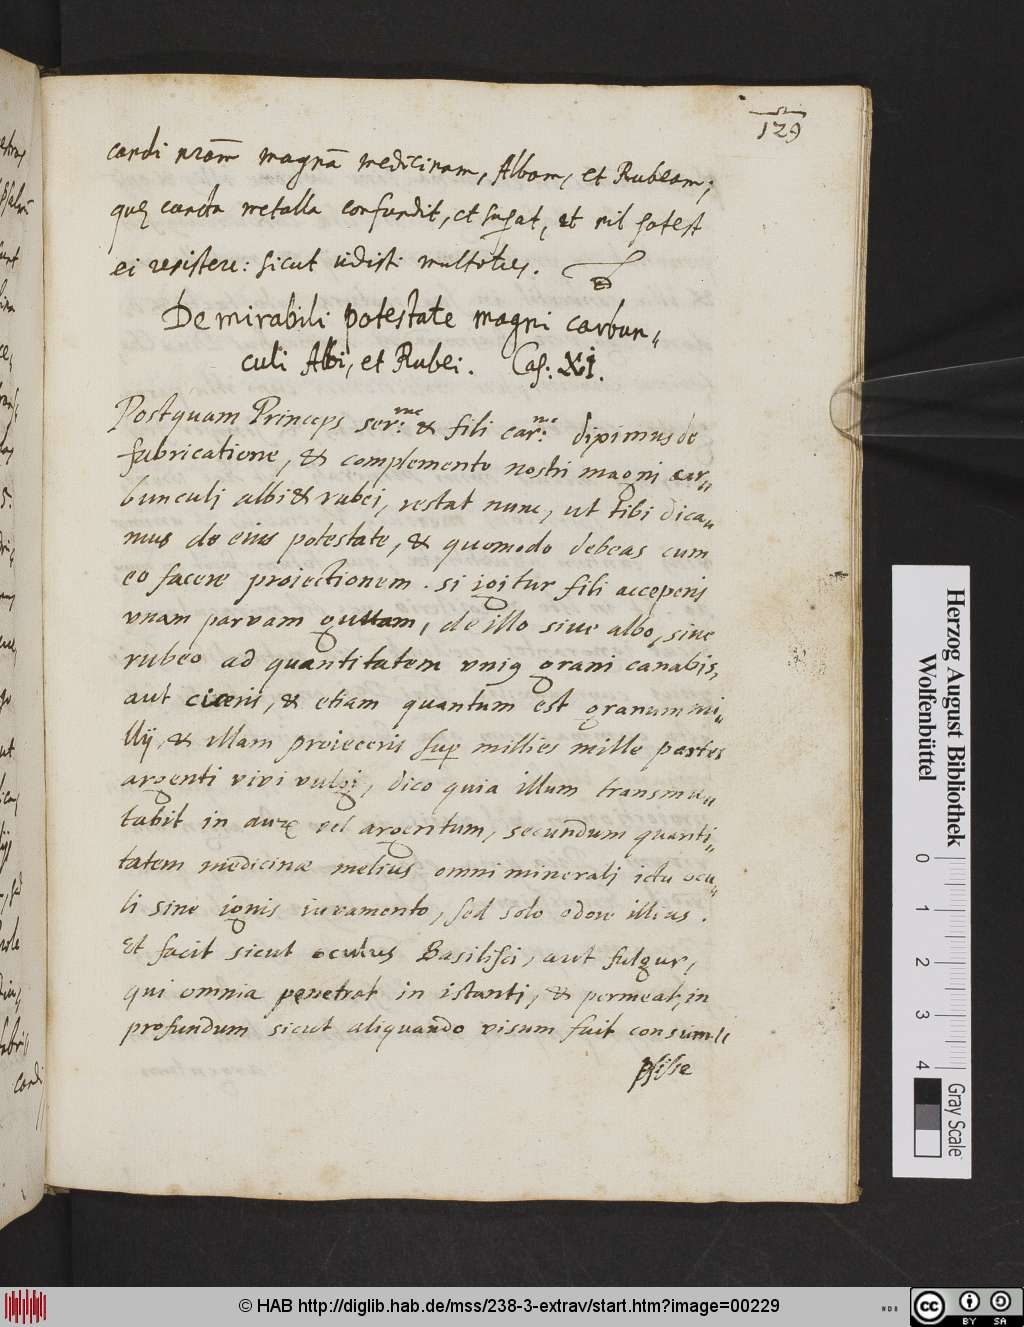 129
candi nram magnā medicinam, Albam, et Rubeam;
quę cuncta metalla confundit, et fugat, et nil potest
ei resistere: sicut vidisti multoties.
De mirabili potestate magni carbun„
culi Albi, et Rubei. Cap: XI.
Postquam Princeps ser:me & fili car:me diximus de
fabricatione, & complemento nostri magni car„
bunculi albi & rubei, restat nunc, ut tibi dica„
mus de eius potestate, & quomodo debeas cum
eo facere proiectionem. si igitur fili acceperis
vnam parvam guttam, de illo sive albo, sive
rubeo ad quantitatem vniq grani canabis,
aut ciceris, & etiam quantum est granum mi„
llij, & illam proieceris sup millies mille partes
argenti vivi vulgi, dico quia illum transmu„
tabit in aurū vel argentum, secundum quanti„
tatem medicinæ melius omni minerali ictu ocu„
li sine ignis iuvamento, sed solo odore illius.
Et facit sicut oculus Basilisci, aut fulgur,
qui omnia penetrat in istanti, & permeat, in
profundum sicut aliquando visum fuit consum„
psisse
Herzog August Bibliothek
Wolfenbüttel
0 1 2 3 4
Gray Scale
© HAB http://diglib.hab.de/mss/238-3-extrav/start.htm?image=00229
cc BY SA